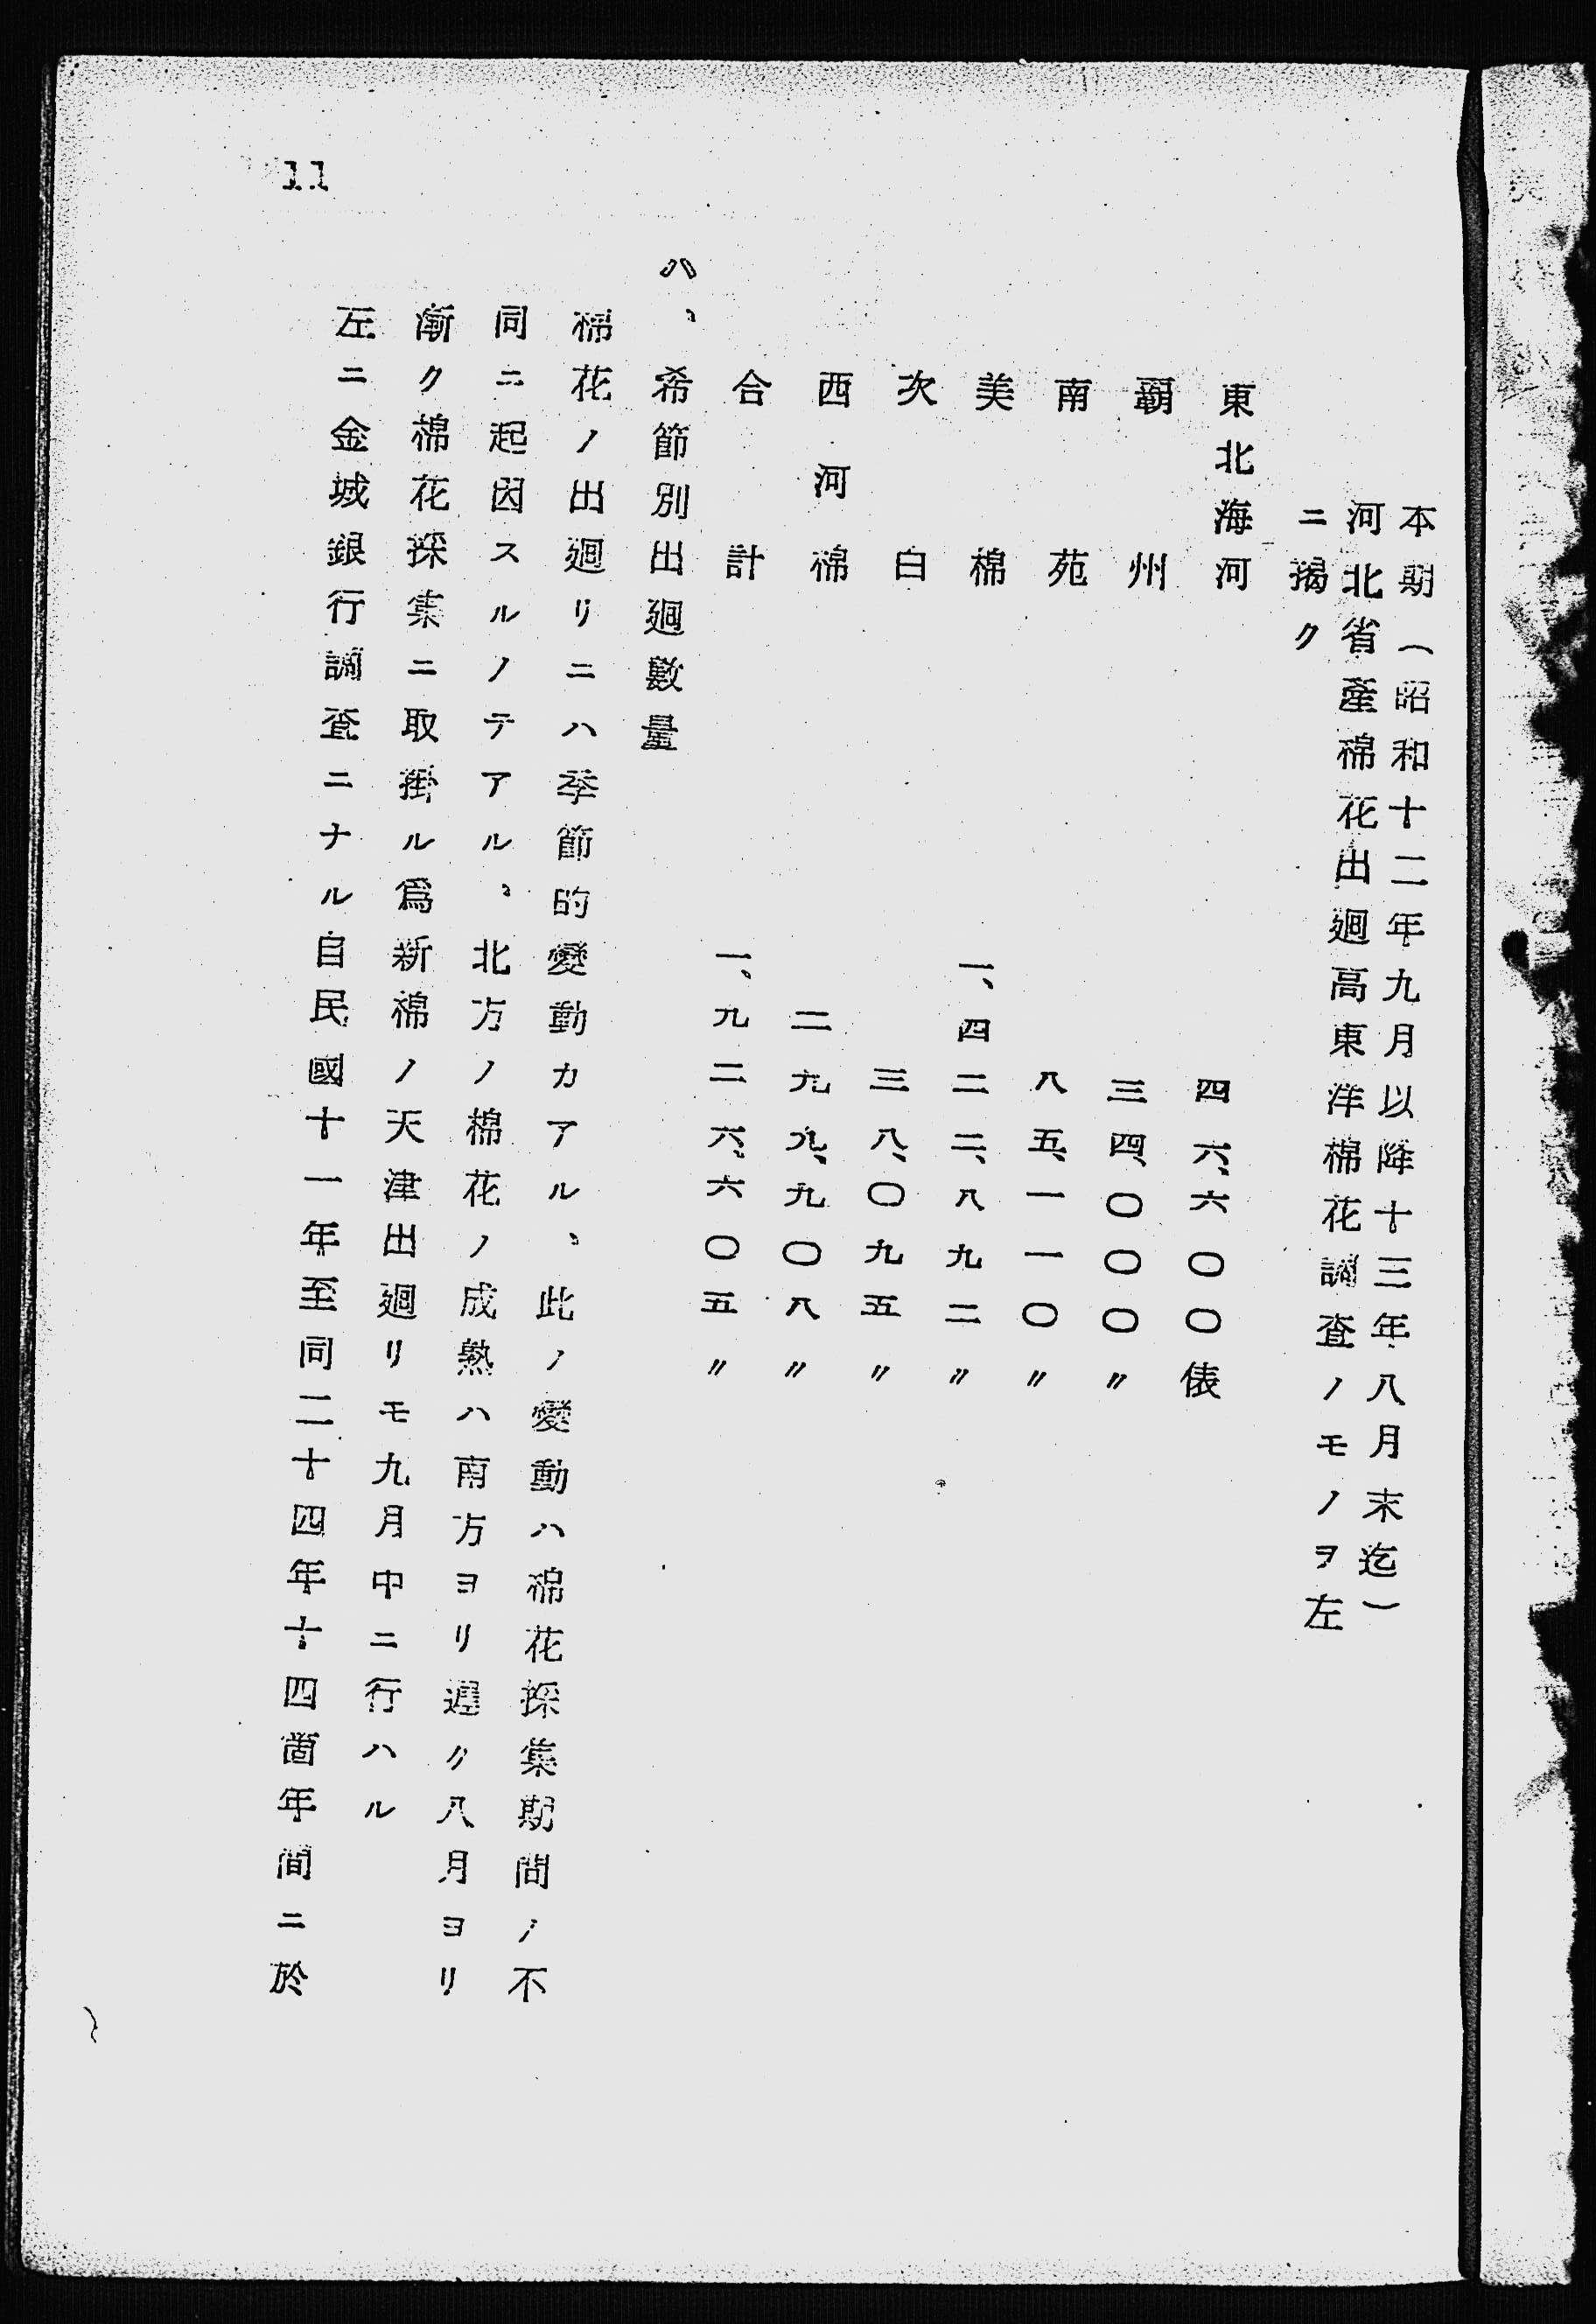 本期(昭和十二年九月以降十三年八月末迄)
河北省產棉花出廻高東洋棉花調査ノモノヲ左
ニ揭ク
東北海河 四六、六〇〇俵
覇州 三四、〇〇〇〃
南苑 八五、一一〇〃
美棉 一、四二二、八九二〃
次白 三八、〇九五〃
西河棉 二九九、九〇八〃
合計 一、九二六、六〇五〃
ハ、希節別出廻數量
棉花ノ出廻リニハ季節的變動カアル、此ノ變動ハ棉花採集期間ノ不
同ニ起因スルノテアル、北方ノ棉花ノ成熟ハ南方ヨリ遲ク八月ヨリ
漸ク棉花採集ニ取掛ル爲新棉ノ天津出廻リモ九月中ニ行ハル
左ニ金城銀行調査ニナル自民國十一年至同二十四年十四箇年間ニ於
11